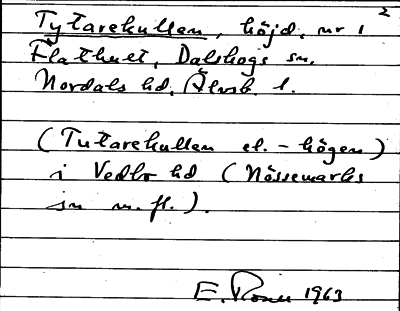 2
Tytarekullen, höjd, nr 1
Flathult, Dalskogs sn,
Nordals hd, Älvsb. l.
(Tutarekullen el. -högen)
i Vedbo hd (Nössemarks
sn m. fl.).
E. Rosell 1963